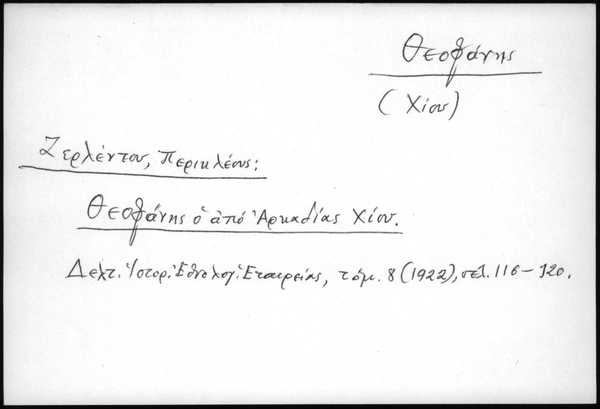 Θεοφάνης
(Χίου)
Ζερλέντου, Περικλέους:
Θεοφάνης ὁ ἀπό Ἀρκαδίας Χίου.
Δελτ. Ἱστορ. Ἐθνολογ. Ἑταιρείας, τόμ. 8 (1922), σελ. 116-120.